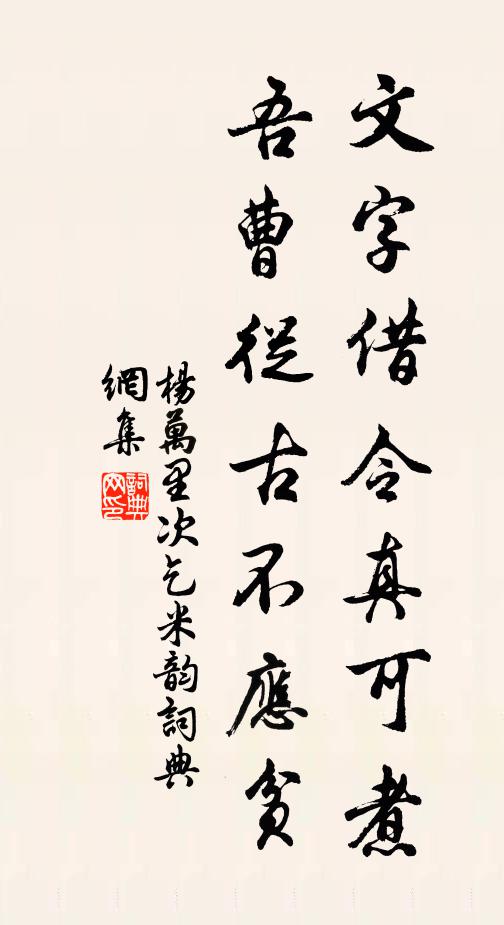 文字借令真可煮
吾曹從古不應貧
楊萬里次乞米韵詞典
網集
詞典
网印